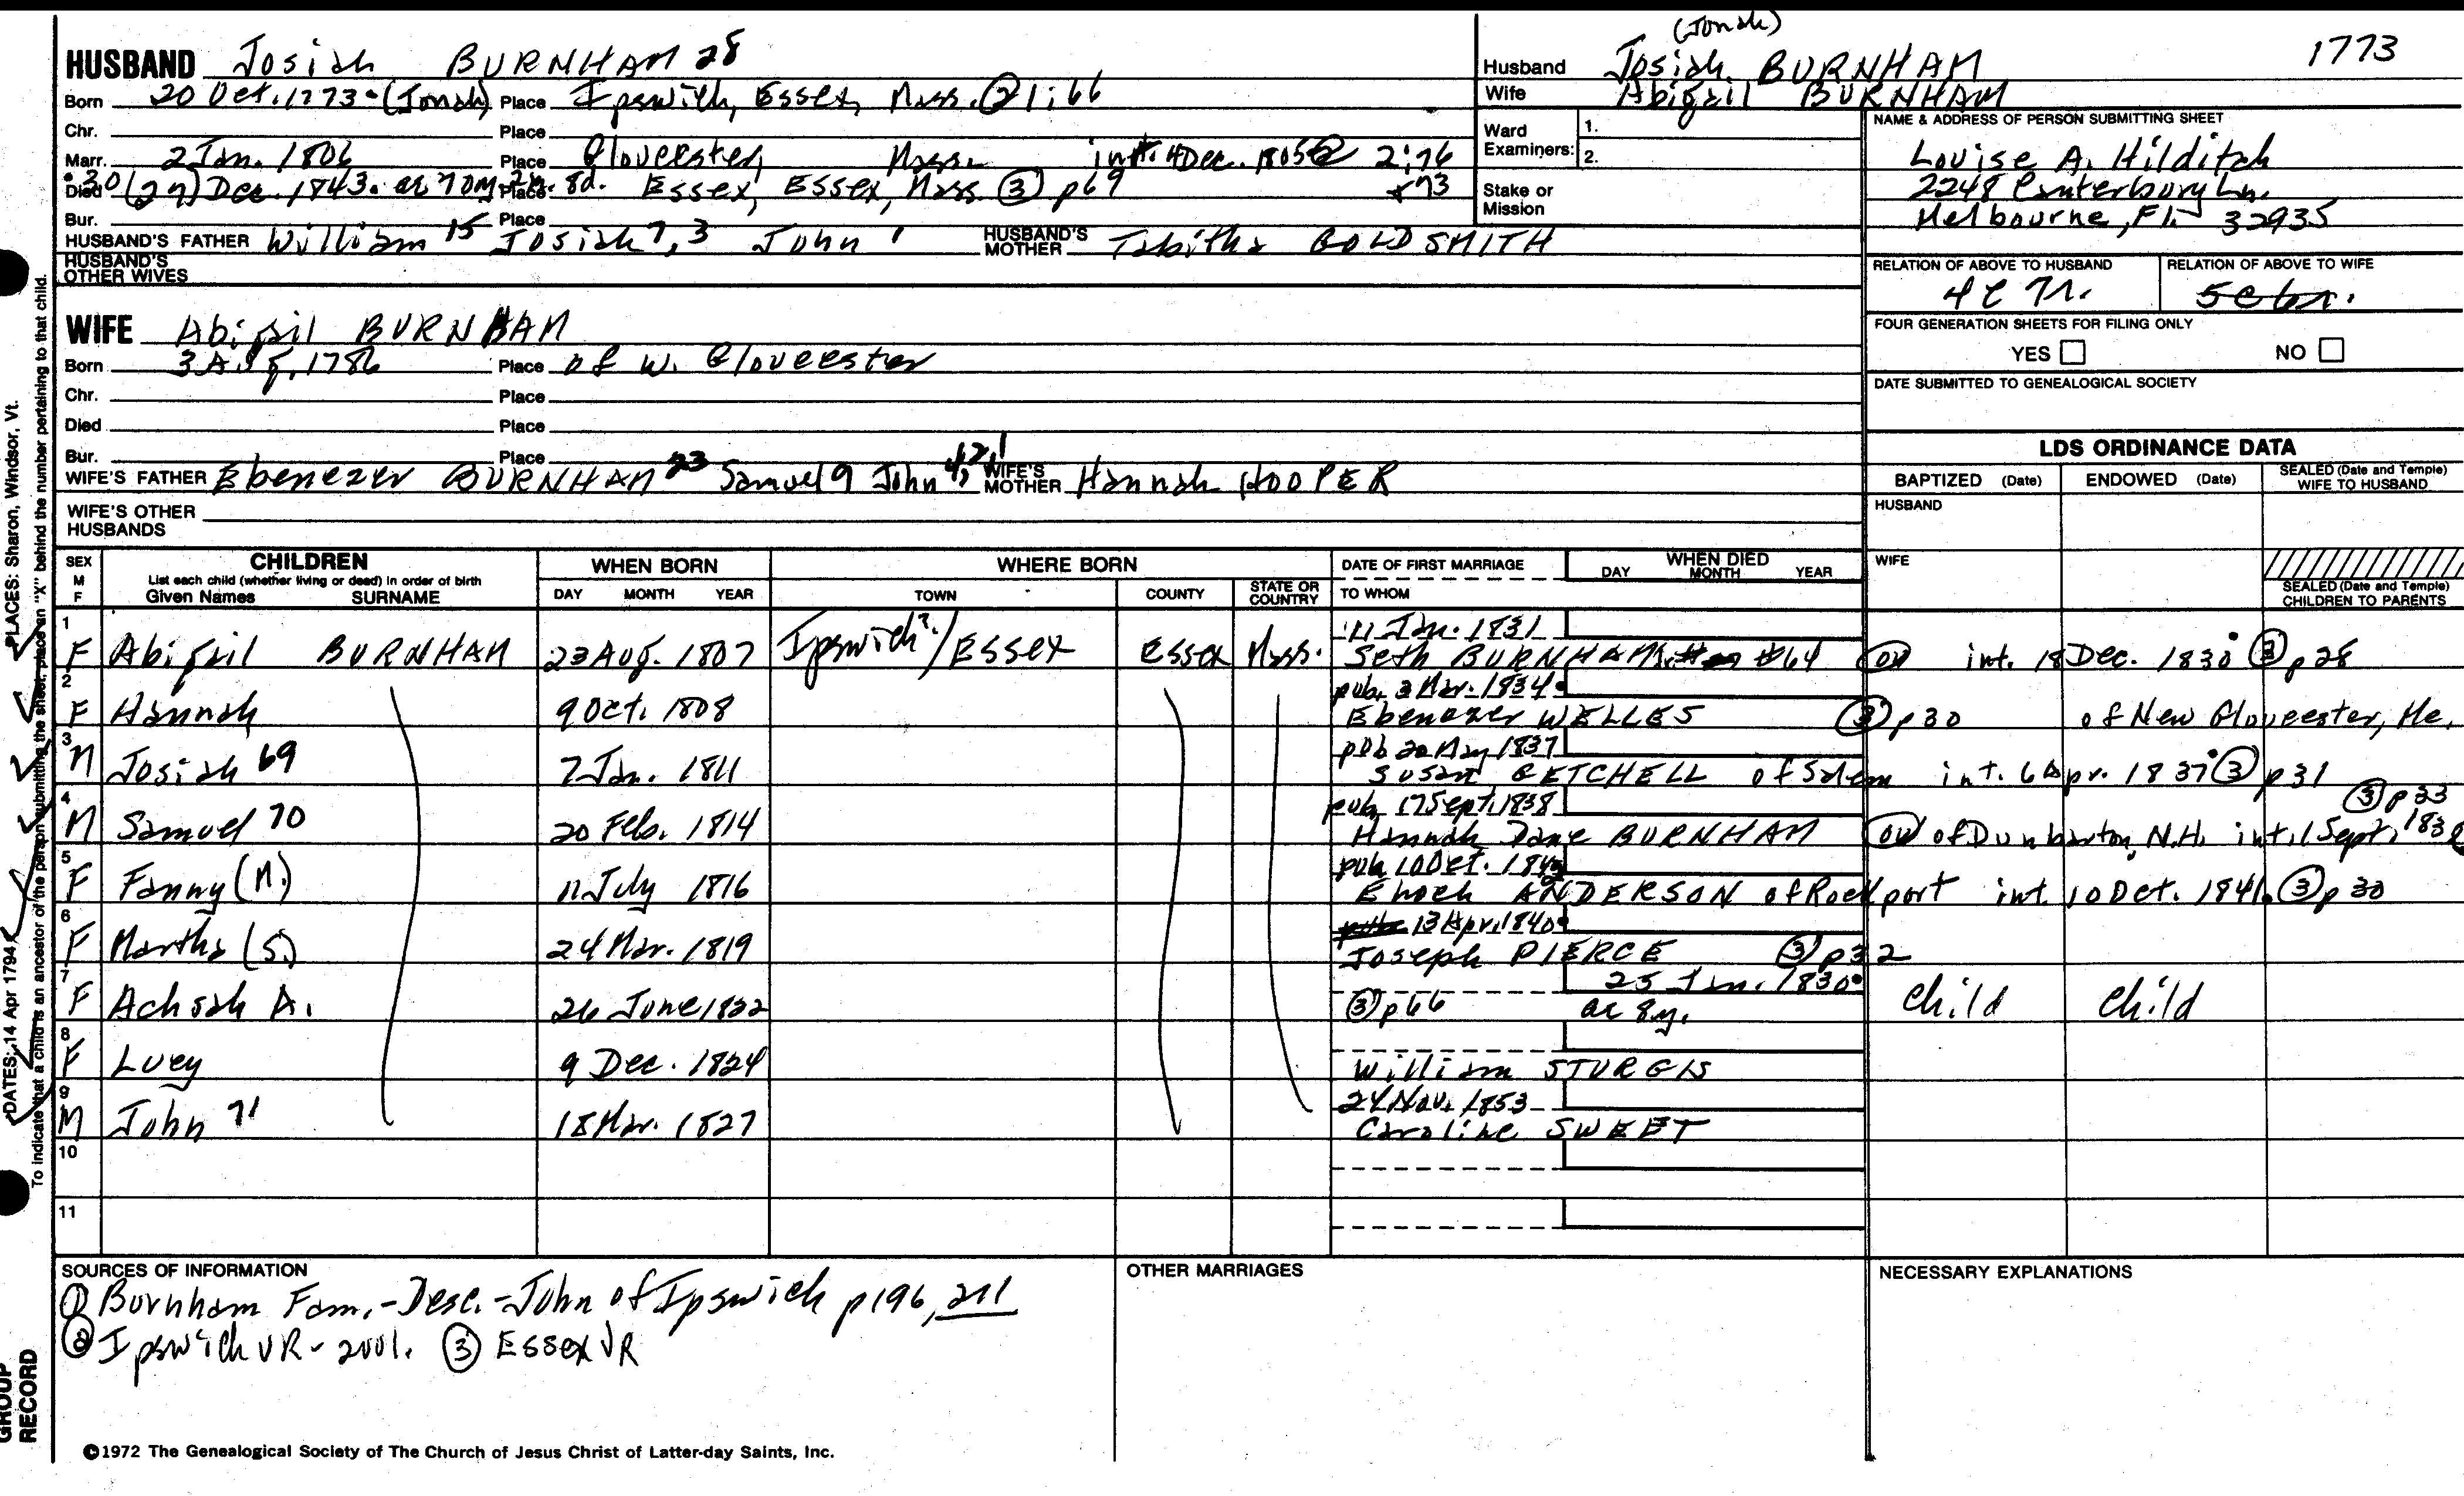 (Jonah)
HUSBAND Josiah BURNHAM 28
Husband Josiah BURNHAM
1773
Born 20 Oct. 1773 (Jonah) Place Ipswich, Essex, Mass. ② 1:66
Wife Abigail BURNHAM
Chr. Place
Ward Examiners: 1. 2.
NAME & ADDRESS OF PERSON SUBMITTING SHEET
Louise A. Hilditch
2248 Canterbury Ln.
Melbourne, Fl. 32935
Marr. 2 Jan. 1806 Place Gloucester, Mass. int. 4 Dec. 1805 ② 2:76
Died 30 (29) Dec. 1843. ae 70y 2m. 8d. Place Essex, Essex, Mass. ③ p69 +73
Stake or Mission
Bur. Place
HUSBAND'S FATHER William 15 Josiah 7, 3 John 1 HUSBAND'S MOTHER Tabitha GOLDSMITH
HUSBAND'S OTHER WIVES
RELATION OF ABOVE TO HUSBAND
4C 7r.
RELATION OF ABOVE TO WIFE
5C6r.
WIFE Abigail BURNHAM
Born 3 Aug. 1786 Place of W. Gloucester
Chr. Place
Died Place
Bur. Place
WIFE'S FATHER Ebenezer BURNHAM 23 Samuel 9 John 4, 2, 1 WIFE'S MOTHER Hannah HOOPER
WIFE'S OTHER HUSBANDS
FOUR GENERATION SHEETS FOR FILING ONLY
YES NO
DATE SUBMITTED TO GENEALOGICAL SOCIETY
LDS ORDINANCE DATA
BAPTIZED (Date) ENDOWED (Date) SEALED (Date and Temple) WIFE TO HUSBAND
HUSBAND
WIFE
SEALED (Date and Temple) CHILDREN TO PARENTS
SEX M F
CHILDREN
List each child (whether living or dead) in order of birth
Given Names SURNAME
WHEN BORN
DAY MONTH YEAR
WHERE BORN
TOWN COUNTY STATE OR COUNTRY
DATE OF FIRST MARRIAGE
TO WHOM
WHEN DIED
DAY MONTH YEAR
1 11 Jan. 1831
F Abigail BURNHAM 23 Aug. 1807 Ipswich?/Essex Essex Mass. Seth BURNHAM #64 int. 18 Dec. 1830 ③ p28
2 pub. 3 Mar. 1834
F Hannah 9 Oct. 1808 Ebenezer WELLES ③ p30 of New Gloucester, Me.
3 pub 20 May 1837
M Josiah 69 7 Jan. 1811 Susan GETCHELL of Salem int. 6 Apr. 1837 ③ p31
4 pub. 17 Sept. 1838 ③ p33
M Samuel 70 20 Feb. 1814 Hannah Dane BURNHAM of Dunbarton, N.H. int. 1 Sept. 1838
5 pub 10 Oct.
F Fanny (M.) 11 July 1816 Enoch ANDERSON of Rockport int. 10 Oct. 1841. ③ p30
6 13 Apr. 1840
F Martha (S.) 24 Mar. 1819 Joseph PIERCE ③ p32
7 25 Jan. 1830
F Achsah A. 26 June 1822 ③ p66 ae 8y. Child Child
8
F Lucy 9 Dec. 1824 William STURGIS
9 24 Nov. 1853
M John 71 18 Mar. 1827 Caroline SWEET
10
11
SOURCES OF INFORMATION
① Burnham Fam. - Desc. - John of Ipswich p196, 211
② Ipswich VR - 2vol. ③ Essex VR
OTHER MARRIAGES
NECESSARY EXPLANATIONS
©1972 The Genealogical Society of The Church of Jesus Christ of Latter-day Saints, Inc.
PLACES: Sharon, Windsor, Vt.
DATES: 14 Apr 1794
To indicate that a child is an ancestor of the person submitting the sheet, place an "X" behind the number pertaining to that child.
GROUP
RECORD